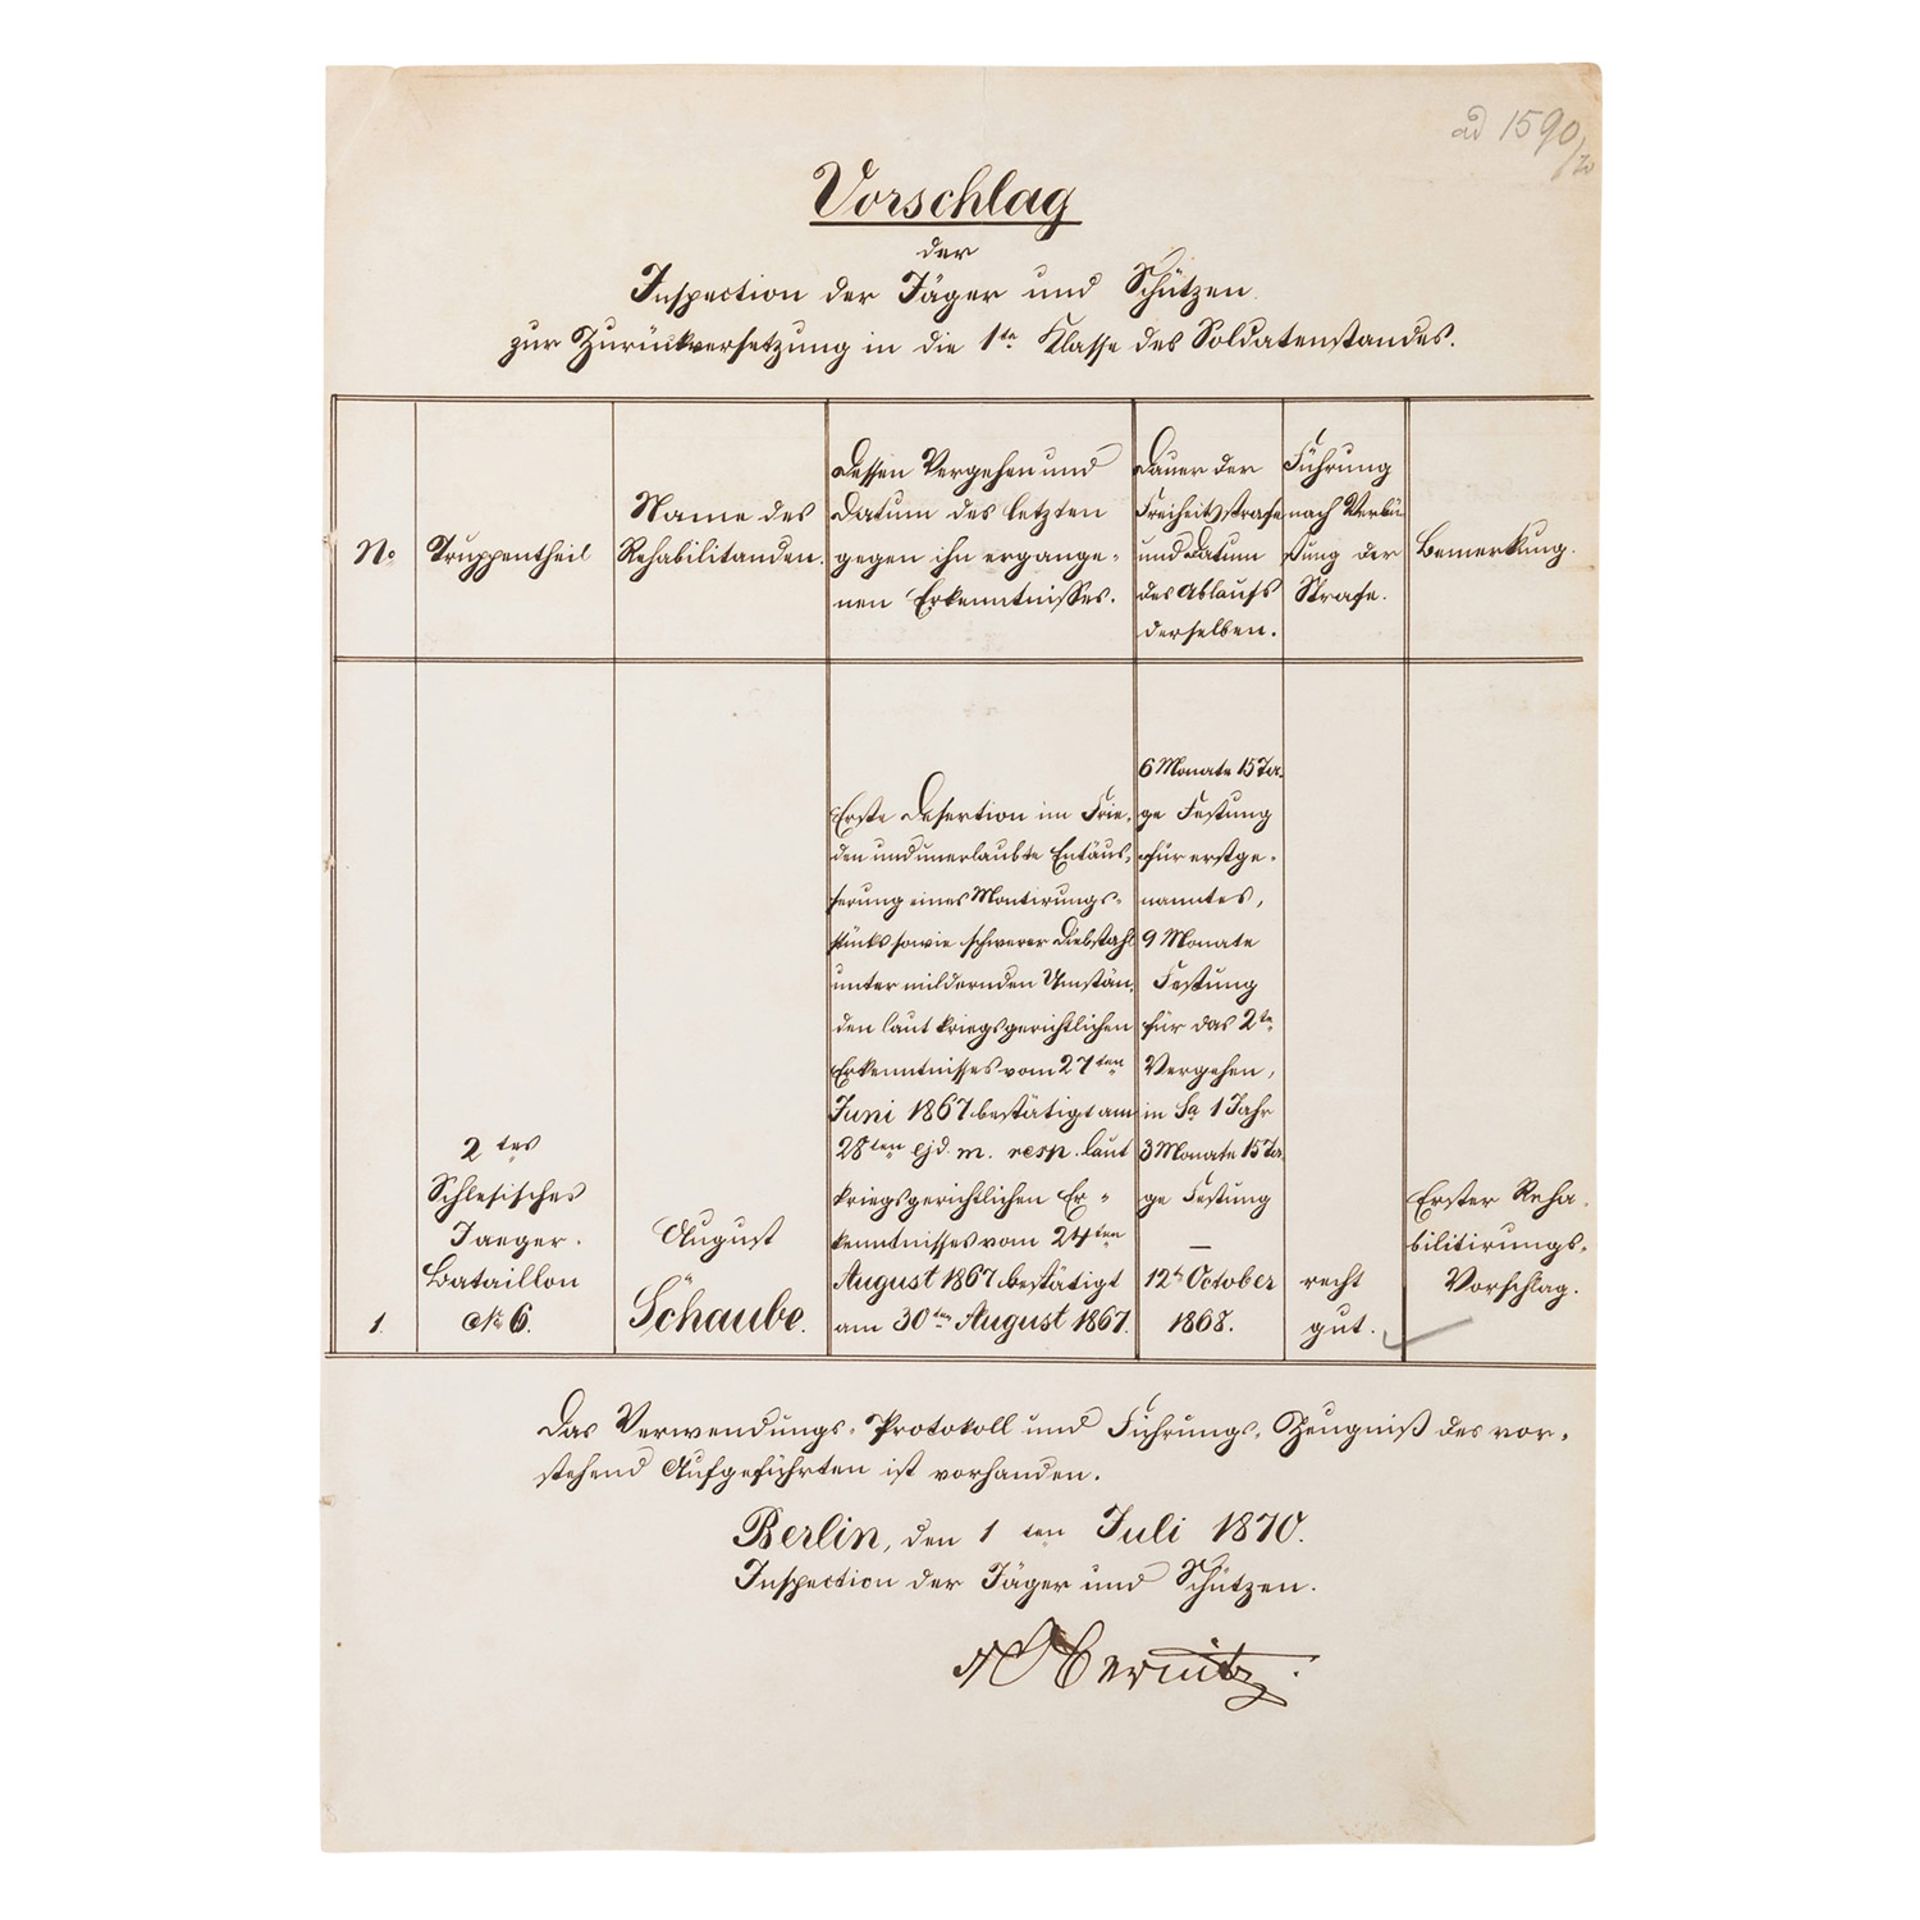 ad 1590/70
Vorschlag
der
Inspection der Jäger und Schützen
zur Zurückversetzung in die 1te Klasse des Soldatenstandes.
No
Truppentheil
Name des
Rehabilitanden.
Dessen Vergehen und
Datum des letzten
gegen ihn ergange-
nen Erkenntnisses.
Dauer der
Freiheitsstrafe
und Datum
des Ablaufs
derselben.
Führung
nach Verbü
ßung der
Strafe.
Bemerkung.
1.
2tes
Schlesisches
Jaeger-
Bataillon
No 6.
August
Schaube.
Erste Desertion im Frie-
den und unerlaubte Entäus-
serung eines Montirungs-
stücks sowie schwerer Diebstahl
unter mildernden Umstän-
den laut kriegsgerichtlichen
Erkenntnisses vom 27ten
Juni 1867 bestätigt am
28ten ejd. m. resp. laut
kriegsgerichtlichen Er-
kenntnisses vom 24ten
August 1867 bestätigt
am 30ten August 1867.
6 Monate 15 Ta-
ge Festung
für erstge-
nanntes,
9 Monate
Festung
für das 2te
Vergehen,
in Sa 1 Jahr
3 Monate 15 Ta-
ge Festung
—
12t October
1868.
recht
gut.
Erster Reha-
bilitirungs-
Vorschlag.
Das Verwendungs-Protokoll und Führungs-Zeugniß des vor-
stehend Aufgeführten ist vorhanden.
Berlin, den 1ten Juli 1870.
Inspection der Jäger und Schützen.
v Obernitz.